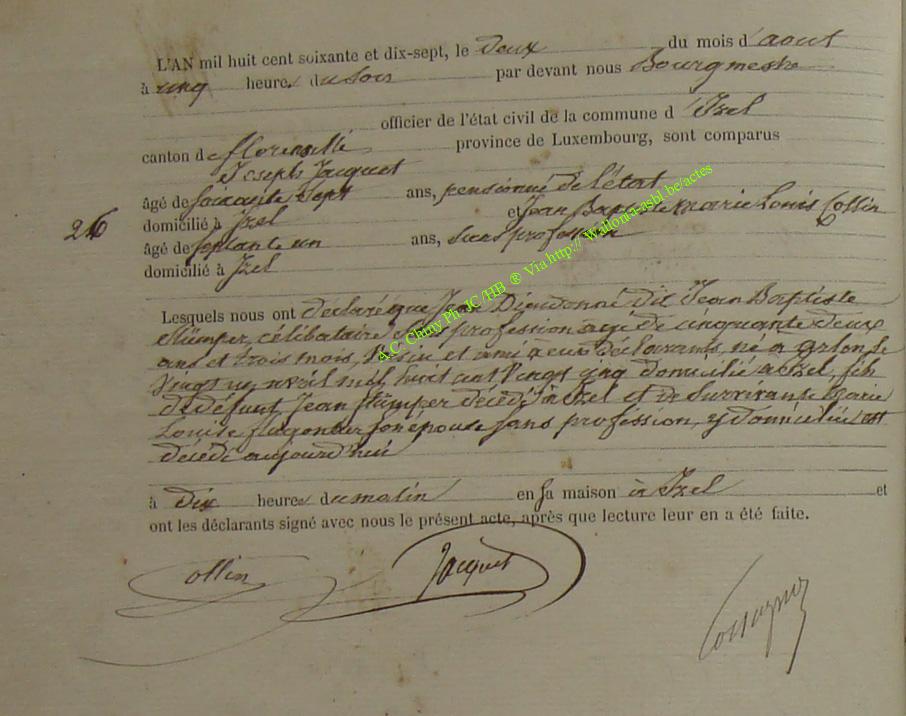 L'AN mil huit cent soixante et dix-sept, le deux du mois d'aout
à cinq heures du soir par devant nous Bourgmestre
officier de l'état civil de la commune d'Izel
canton de florenville province de Luxembourg, sont comparus
Joseph Jacquet
âgé de soixante sept ans, pensionné de l'état
domicilié à Izel et Jean Baptiste Marie Louis Collin
26
âgé de septante un ans, sans profession
domicilié à Izel
A.C. Chiny Ph. JC /HB ® Via http:// Wallonia-asbl.be/actes
Lesquels nous ont déclaré que Jean Dieudonné dit Jean Baptiste
Stümper, célibataire, sans profession agé de cinquante deux
ans et trois mois, voisin et ami à eux déclarants, né à arlon le
vingt un avril mil huit cent vingt cinq domicilié à Izel, fils
de défunt Jean Stümper décédé à Izel et de survivante Marie
Louise son épouse sans profession, y domiciliée est
décédé aujourd'hui
à dix heures du matin en sa maison à Izel et
ont les déclarants signé avec nous le présent acte, après que lecture leur en a été faite.
Collin Jacquet